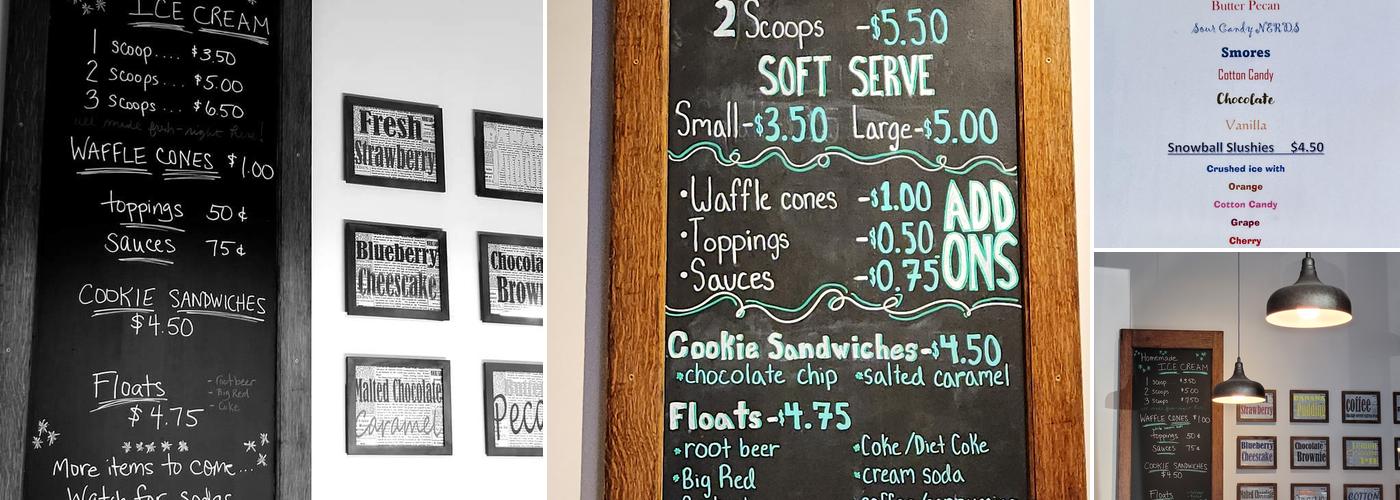 ICE CREAM
1 scoop.... $3.50
2 scoops... $5.00
3 scoops... $6.50
all made fresh-right here!
WAFFLE CONES $1.00
toppings 50¢
sauces 75¢
COOKIE SANDWICHES
$4.50
Floats
$4.75
- root beer
- Big Red
- Coke
More items to come...
Watch for sodas
Fresh
Strawberry
Blueberry
Cheesecake
Chocola
Brown
Malted Chocolate
Caramel
Butter
Peca
2 Scoops -$5.50
SOFT SERVE
Small-$3.50 Large-$5.00
•Waffle cones -$1.00
•Toppings -$0.50
•Sauces -$0.75
ADD
ONS
Cookie Sandwiches-$4.50
*chocolate chip *salted caramel
Floats-$4.75
*root beer *Coke/Diet Coke
*Big Red *cream soda
Butter Pecan
Sour Candy NERDS
Smores
Cotton Candy
Chocolate
Vanilla
Snowball Slushies $4.50
Crushed ice with
Orange
Cotton Candy
Grape
Cherry
Homemade
ICE CREAM
1 scoop $3.50
2 scoops $5.00
3 scoops
WAFFLE CONES $1.00
toppings 50¢
sauces 75¢
COOKIE SANDWICHES
$4.50
Floats
Strawberry
BANANA
Pudding
coffee
Blueberry
Cheescake
Chocolate
Brownie
Malted Chocolate